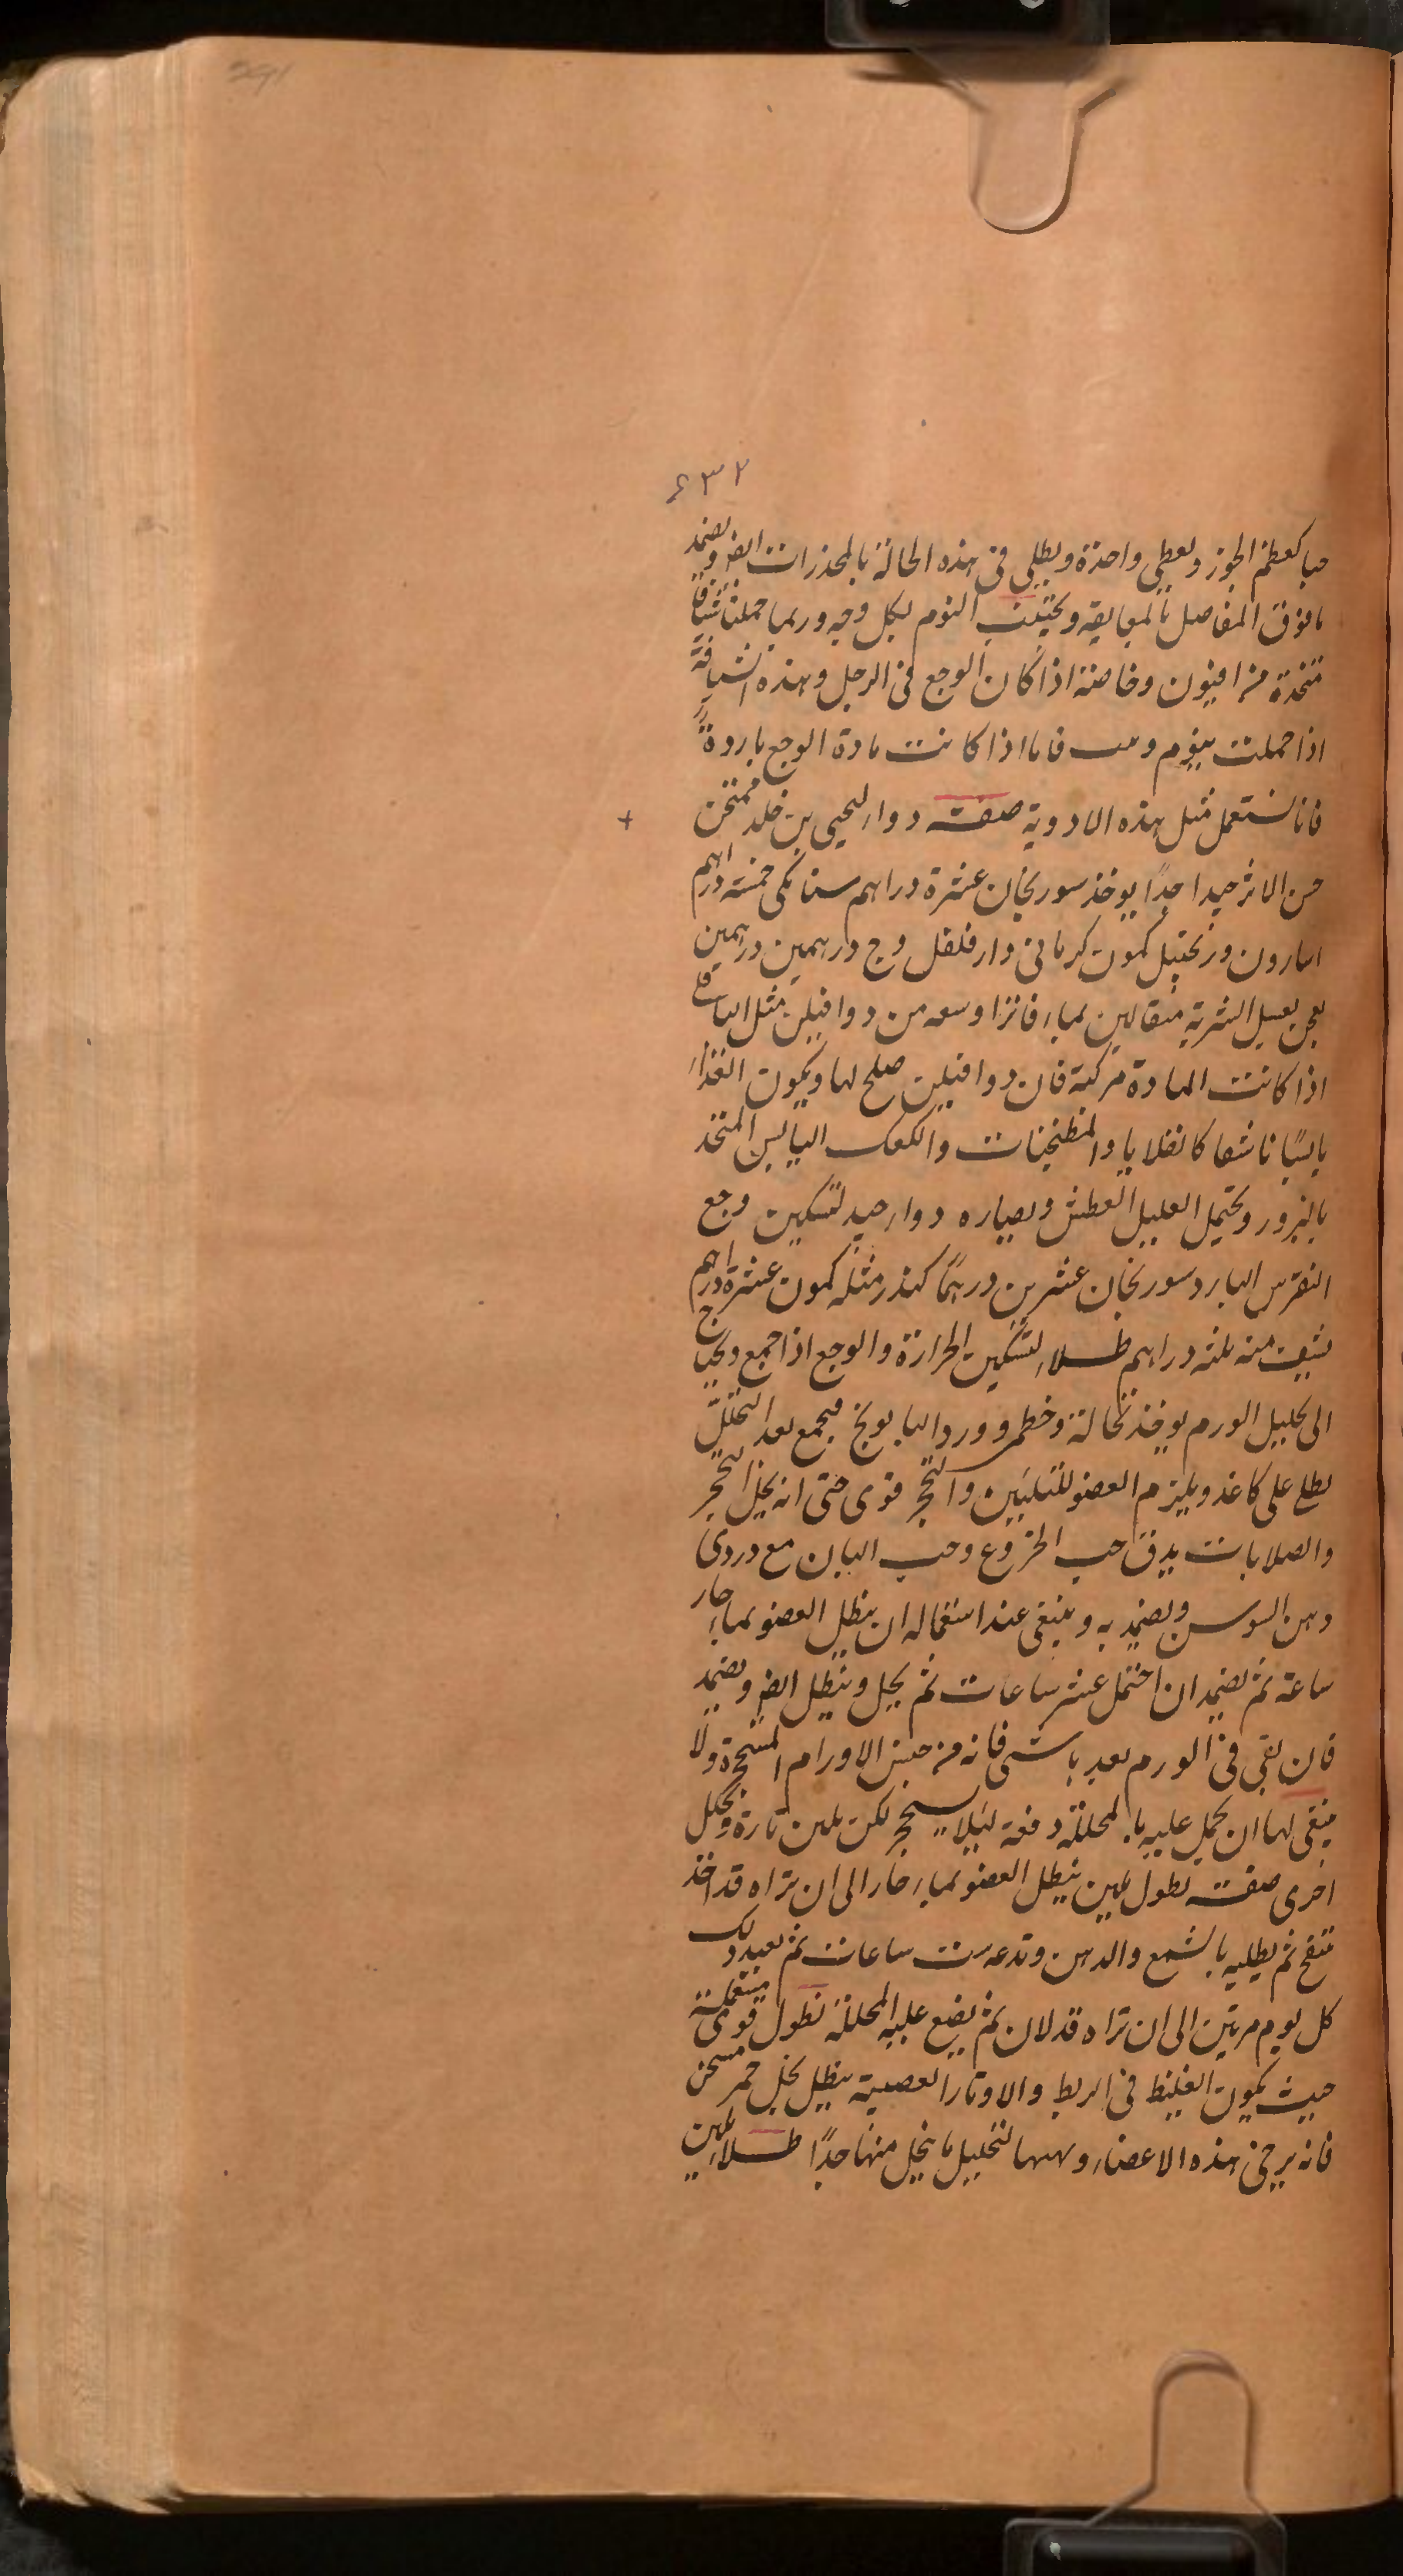 291
٤٣٢
حبا كعظم الجوز ويعطى واحدة ويطلى فى هذه الحالة بالمخدرات ايضا ويضمد
ما فوق المفاصل بالمعابقه ويجتنب النوم بكل وجه وربما حملنا شيافا
متخذة من افيون وخاصة اذا كان الوجع فى الرجل وهذه الشيافة
اذا حملت ينوم فاما اذا كانت مادة الوجع باردة
فانا نستعمل مثل هذه الادوية صفت دواء ليحيى بن خلد ممتحن
حسن الاثر جيدا جدًا يوخذ سورنجان عشرة دراهم سنا مكى خمسة دراهم
اسارون وزنجبيل كمون كرمانى دار فلفل وج درهمين درهمين
يعجن بعسل الشربة مثقالين بماء فاتر اوسعه من دوا فيلن مثل الباقلا
اذا كانت المادة مركبة فان دوا فيلين صلح لها ويكون الغذاء
يابسًا ناشفا كالقلايا والمطنجنات والكعك اليابس المتخذ
بالبزور ويحتمل العليل العطش ويصابره دواء جيد لتسكين وجع
النقرس البارد سورنجان عشرين درهمًا كندر مثله كمون عشرة دراهم
يسف منه ثلثه دراهم طلاء لتسكين الحرارة والوجع اذا اجمع ويحتاج
الى تحليل الورم يوخذ نخالة وخطمى وورد البابونج فيجمع بعد التخلل
يطلى على كاغذ ويلزم العضو للتليين والتحجر قوى حتى انه يحل التحجر
والصلابات يدق حب الخروع وحب البان مع دردى
دهن السوسن ويضمد به وينبغى عند استعماله ان ينطل العضو بماء حار
ساعة ثم يضمد ان احتمل عشر ساعات ثم يحل وينطل ايضا ويضمد
فان بقى فى الورم بعد باشى فانه من جنس الاورام المتحجرة ولا
ينبغى لها ان يحمل عليه بالمحللة دفعة ليلا يتحجر لكن يلين تارة ويحلل
اخرى صفت نطول يلين ينطل العضو بماء حار الى ان تراه قد اخذ
ينتفخ ثم يطليه بالشمع والدهن وتدعه ست ساعات ثم يعيد ذلك
كل يوم مرتين الى ان تراه قد لان ثم يضع عليه المحللة نطول قوى يستعمله
حيث يكون الغليظ فى الربط والاوتار العصبية ينطل بخل خمر مسخن
فانه يرخى هذه الاعضاء ويهيها لتحليل ما ينحل منها جدًا طلاء يلين